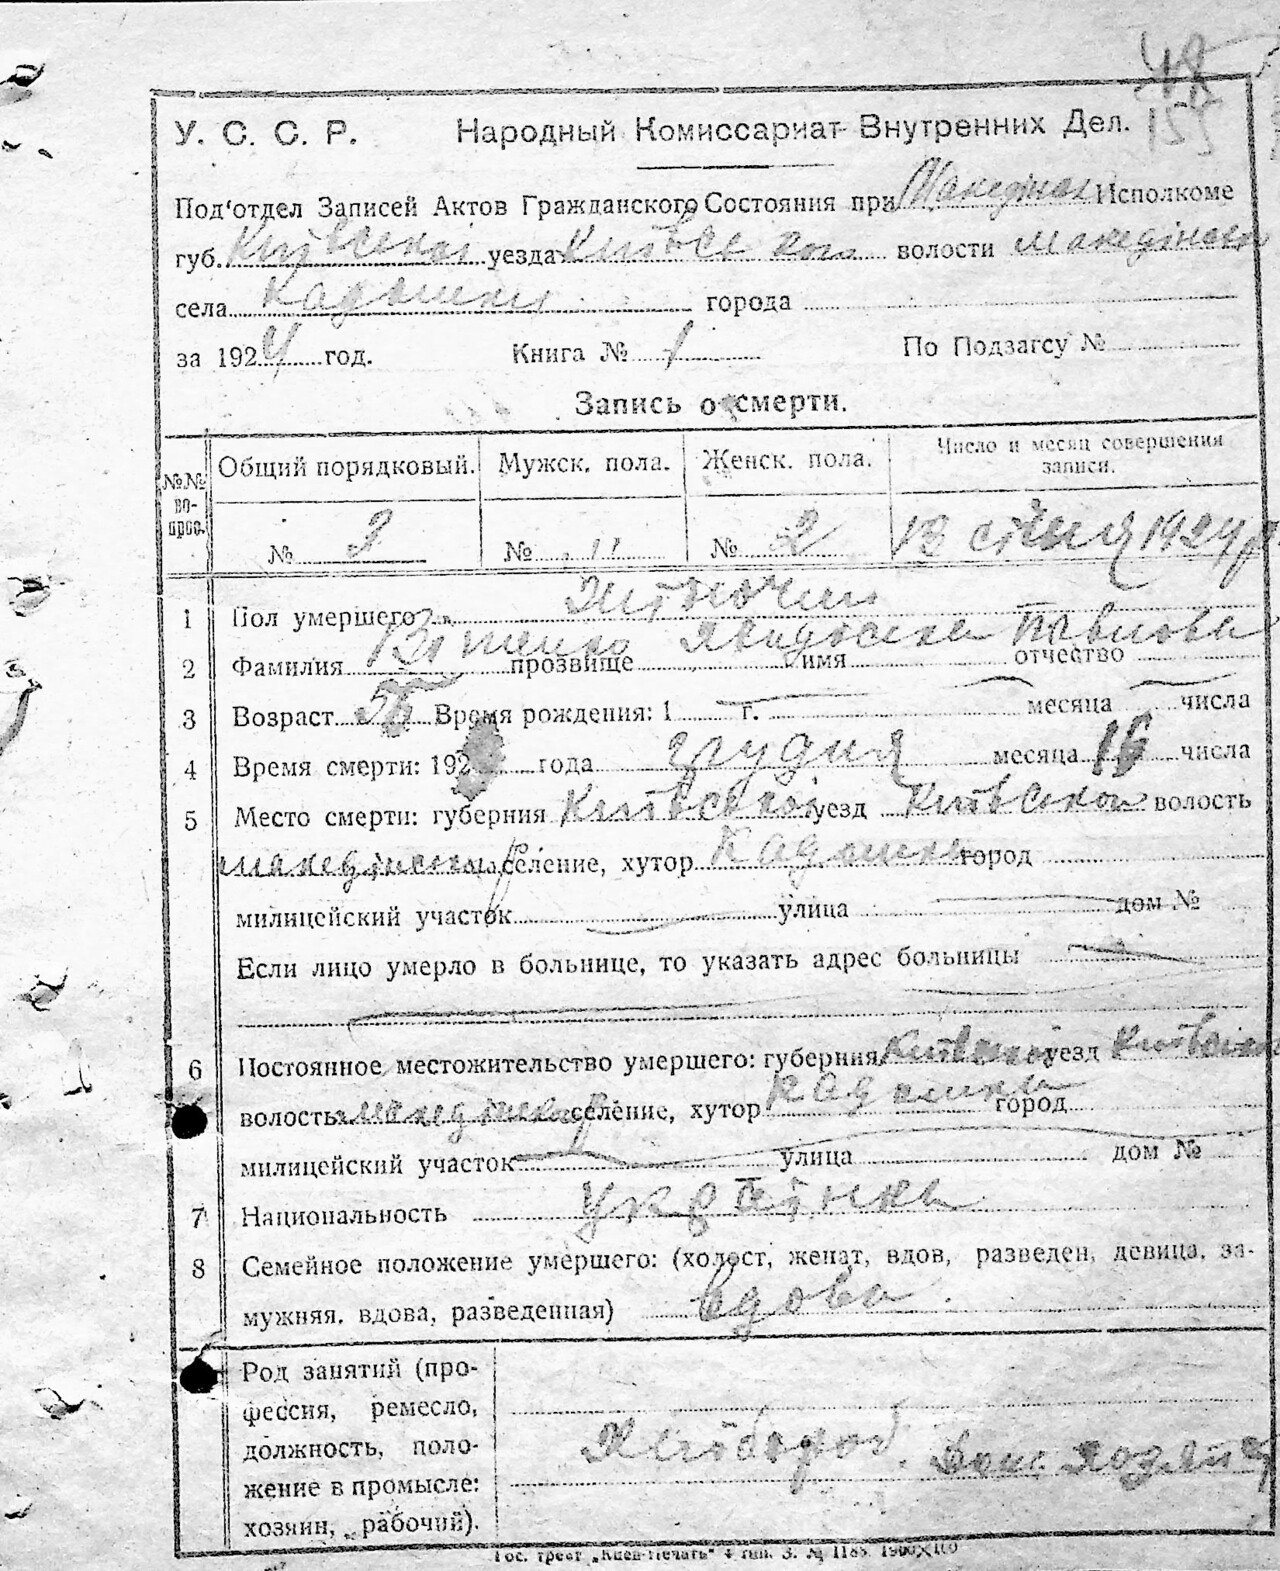 48
155
У. С. С. Р. Народный Комиссариат Внутренних Дел.
Под'отдел Записей Актов Гражданского Состояния при Исполкоме
губ. Київської уезда Київської волости Македонської
села Кадомки города
за 1924 год. Книга № 1 По Подзагсу №
Запись о смерти.
№№ вопрос. Общий порядковый. Мужск. пола. Женск. пола. Число и месяц совершения записи.
№ 2 № " № 2 13 січня 1924 р.
1 Пол умершего Жіночий
2 Фамилия прозвище имя Явдоха отчество Павлова
3 Возраст Время рождения: 1 г. месяца числа
4 Время смерти: 192 года грудня месяца 16 числа
5 Место смерти: губерния Київської уезд Київської волость
селение, хутор Кадомка город
милицейский участок улица дом №
Если лицо умерло в больнице, то указать адрес больницы
6 Постоянное местожительство умершего: губерния Київської уезд Київської
волость селение, хутор Кадомка город
милицейский участок улица дом №
7 Национальность Українка
8 Семейное положение умершего: (холост, женат, вдов, разведен, девица, за-
мужняя, вдова, разведенная) вдова
Род занятий (про-
фессия, ремесло,
должность, поло-
жение в промысле:
хозяин, рабочий).
Хлібороб.
Гос. трест „Киев-Печать" 4 тип. З. № 1188. 1900×100